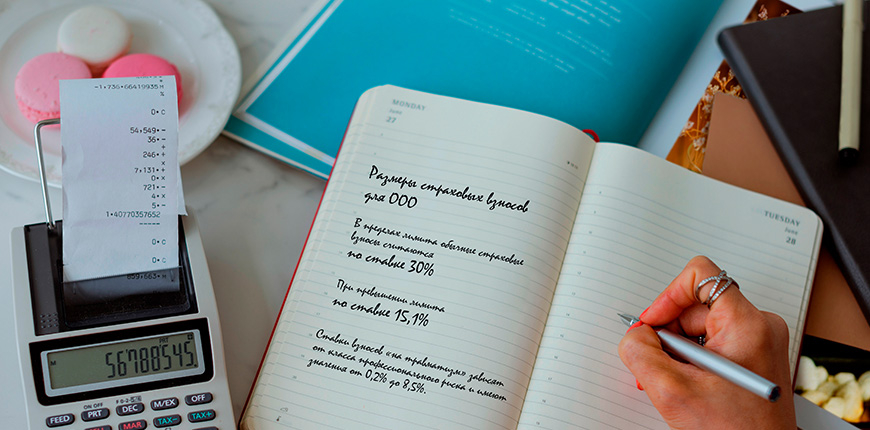 -1•736•66419935 M
%
0• C
54•549••
36• -
+
246• +
×
7•131• +
0• ×
721• -
4• ×
5• -
1•40770357652
-----
0• C
0• C
859•663•
5678.8545
ON OFF
F 0 2 3
FEED
PRT
DEC
M/EX
OFF
MAR
TAX-
TAX+
MONDAY
June
27
Размеры страховых взносов
для ООО
В пределах лимита обычные страховые
взносы считаются
по ставке 30%
При превышении лимита
по ставке 15,1%
Ставки взносов «на травматизм» зависят
от класса профессионального риска и имеют
значения от 0,2% до 8,5%.
TUESDAY
June
28